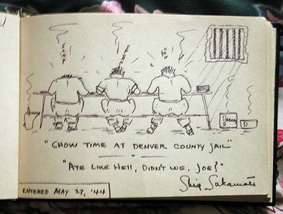 "CHOW TIME AT DENVER COUNTY JAIL"
"ATE LIKE HELL, DIDN'T WE, JOE?"
Sakamoto
ENTERED MAY 27, '44